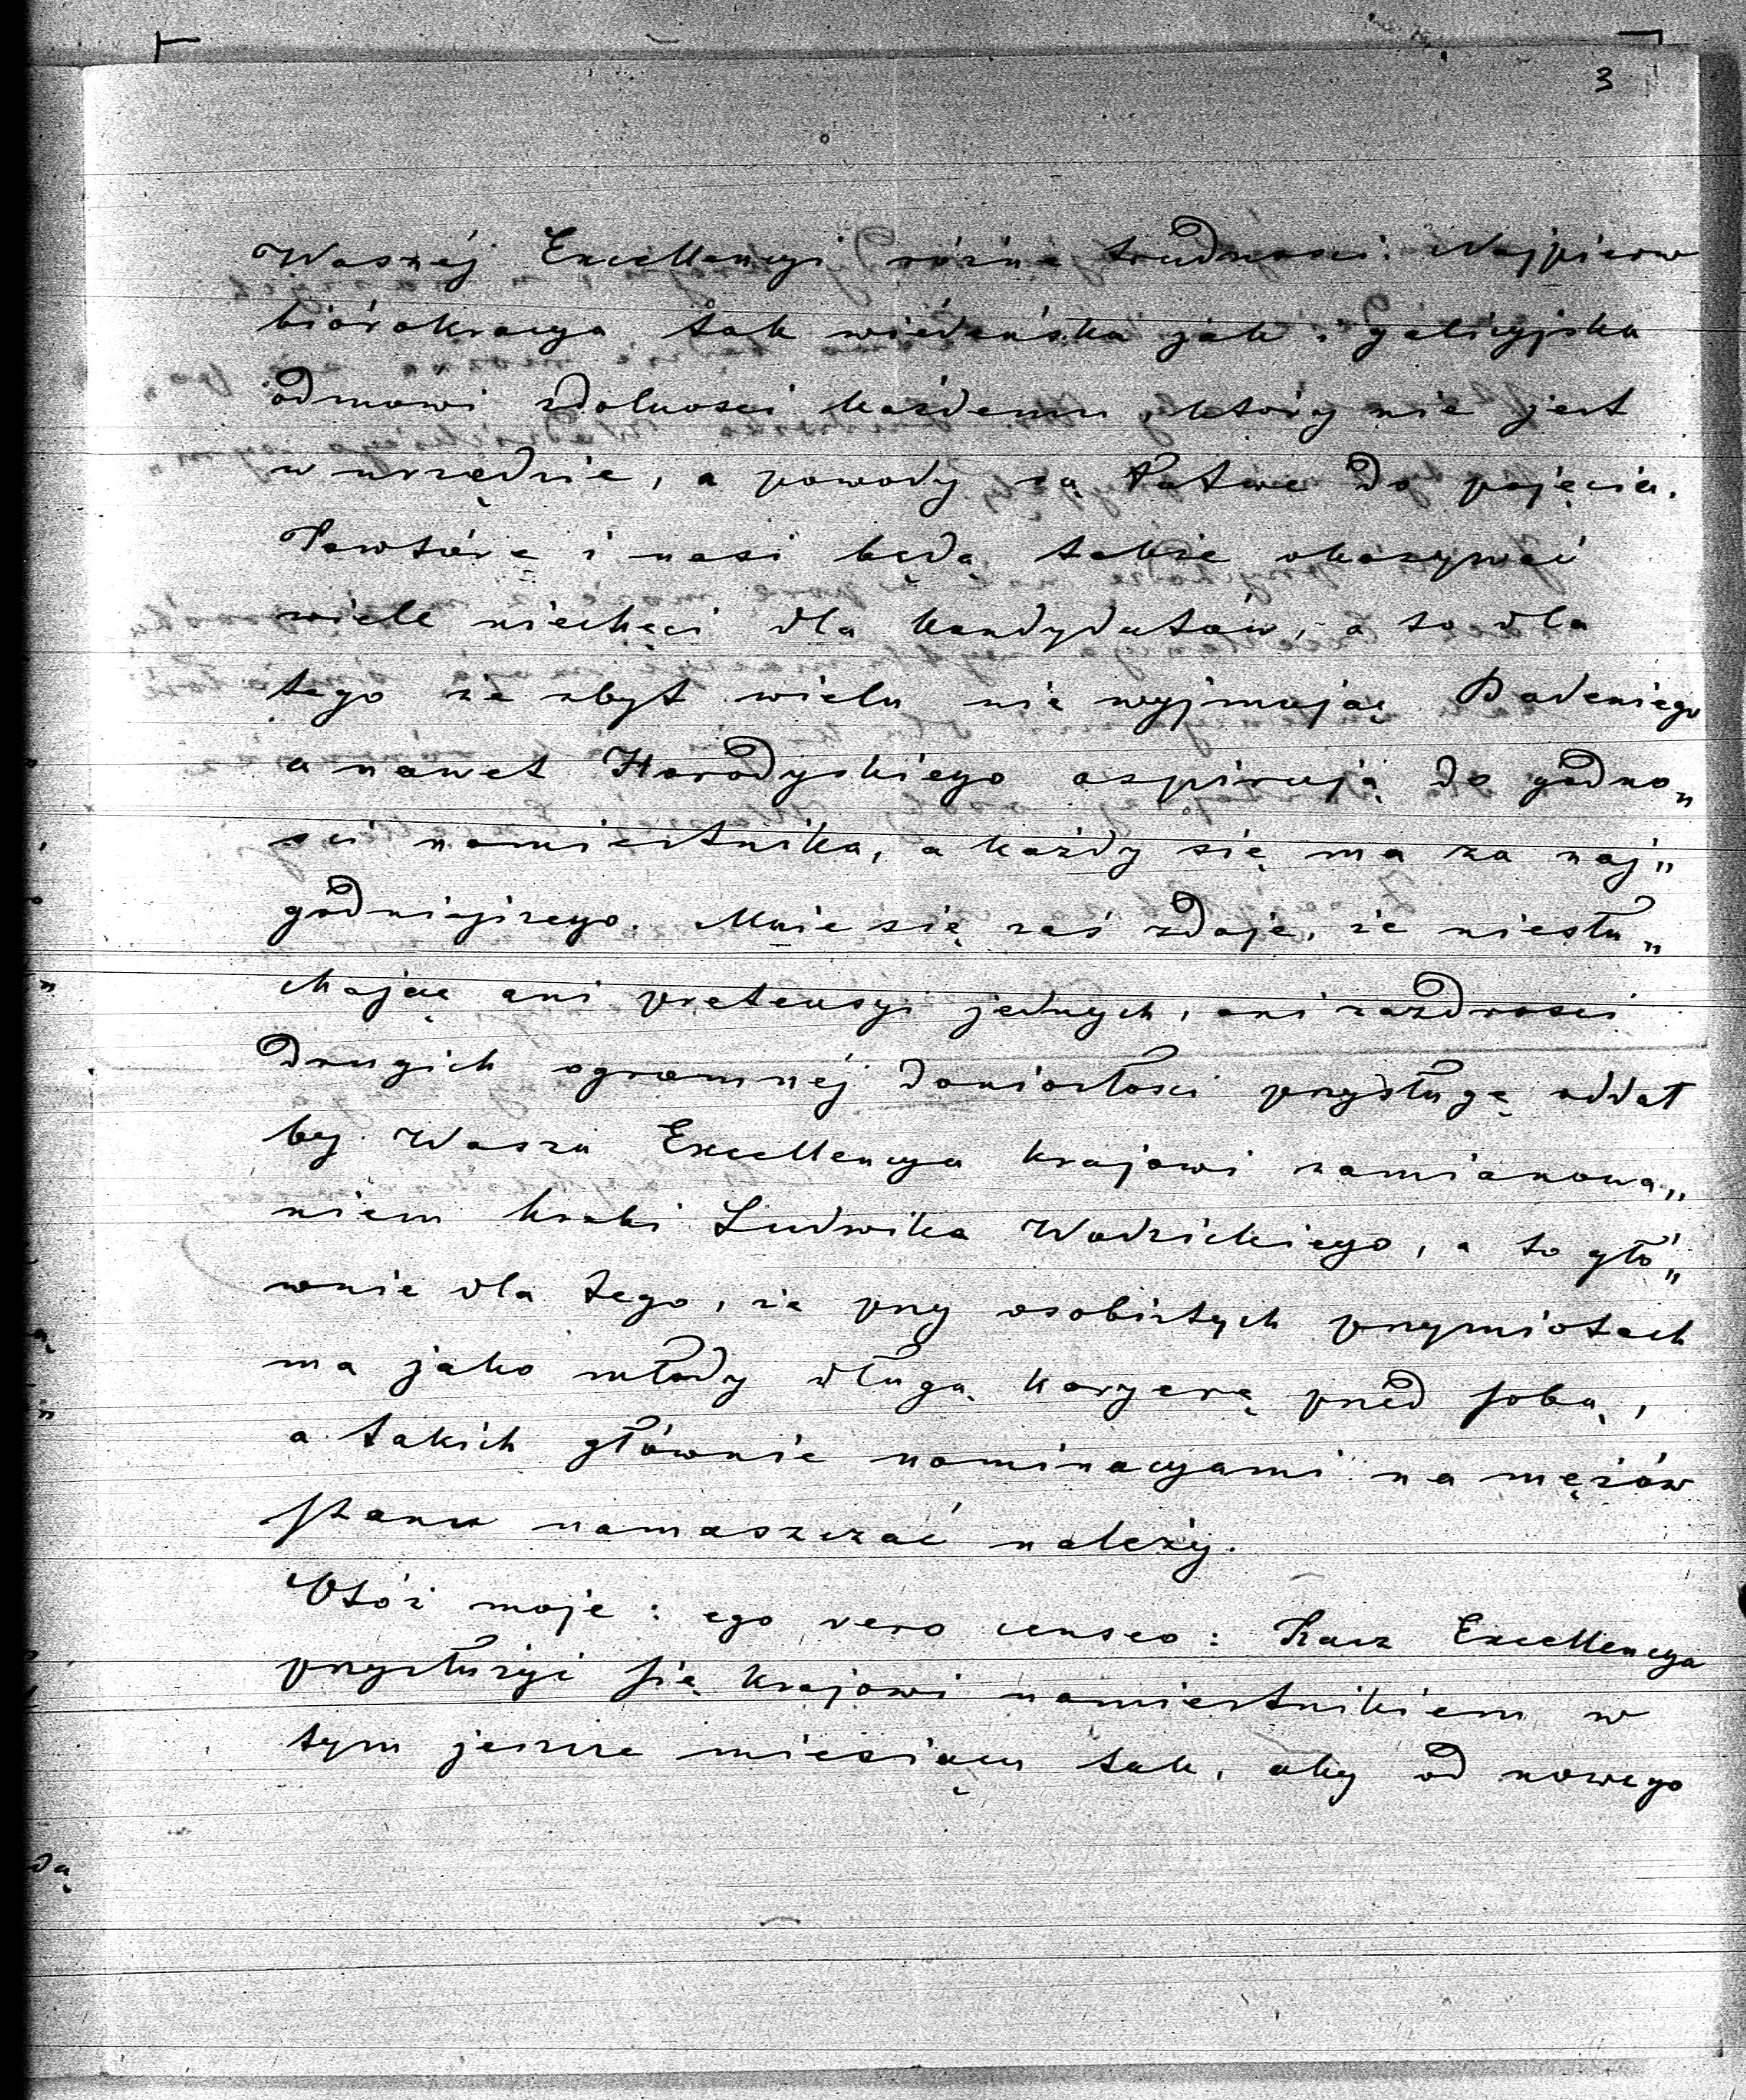 3
Waszéj Excellencyi różne trudności: Najpierw
biórokracya tak wiedeńska jak i galicyjska
odmowi zdolności każdemu, który nie jest
w urzędzie, a powody są łatwe do pojęcia.
Powtóre i nasi będą także okazywać
wiele niechęci dla kandydatów, a to dla
tego że zbyt wielu nie wyjmując Badeniego
a nawet Horodyskiego aspirują do godno„
ści namiestnika, a każdy się ma za naj„
godniejszego. Mnie się zaś zdaje, że niesłu„
chając ani pretensyi jednych, ani zazdrości
drugich ogromnéj doniosłości przysługę oddał
by Wasza Excellencya krajowi zamianowa„
niem hrabi Ludwika Wodzickiego, a to głó„
wnie dla tego, że przy osobistych przymiotach
ma jako młody długą karyerę przed sobą,
a takich głównie nominacyami na mężów
stanu namaszczać należy.
Otóż moje: ego vero censeo: Racz Excellencya
przysłużyć się krajowi namiestnikiem w
tym jeszcze miesiącu tak, aby od nowego